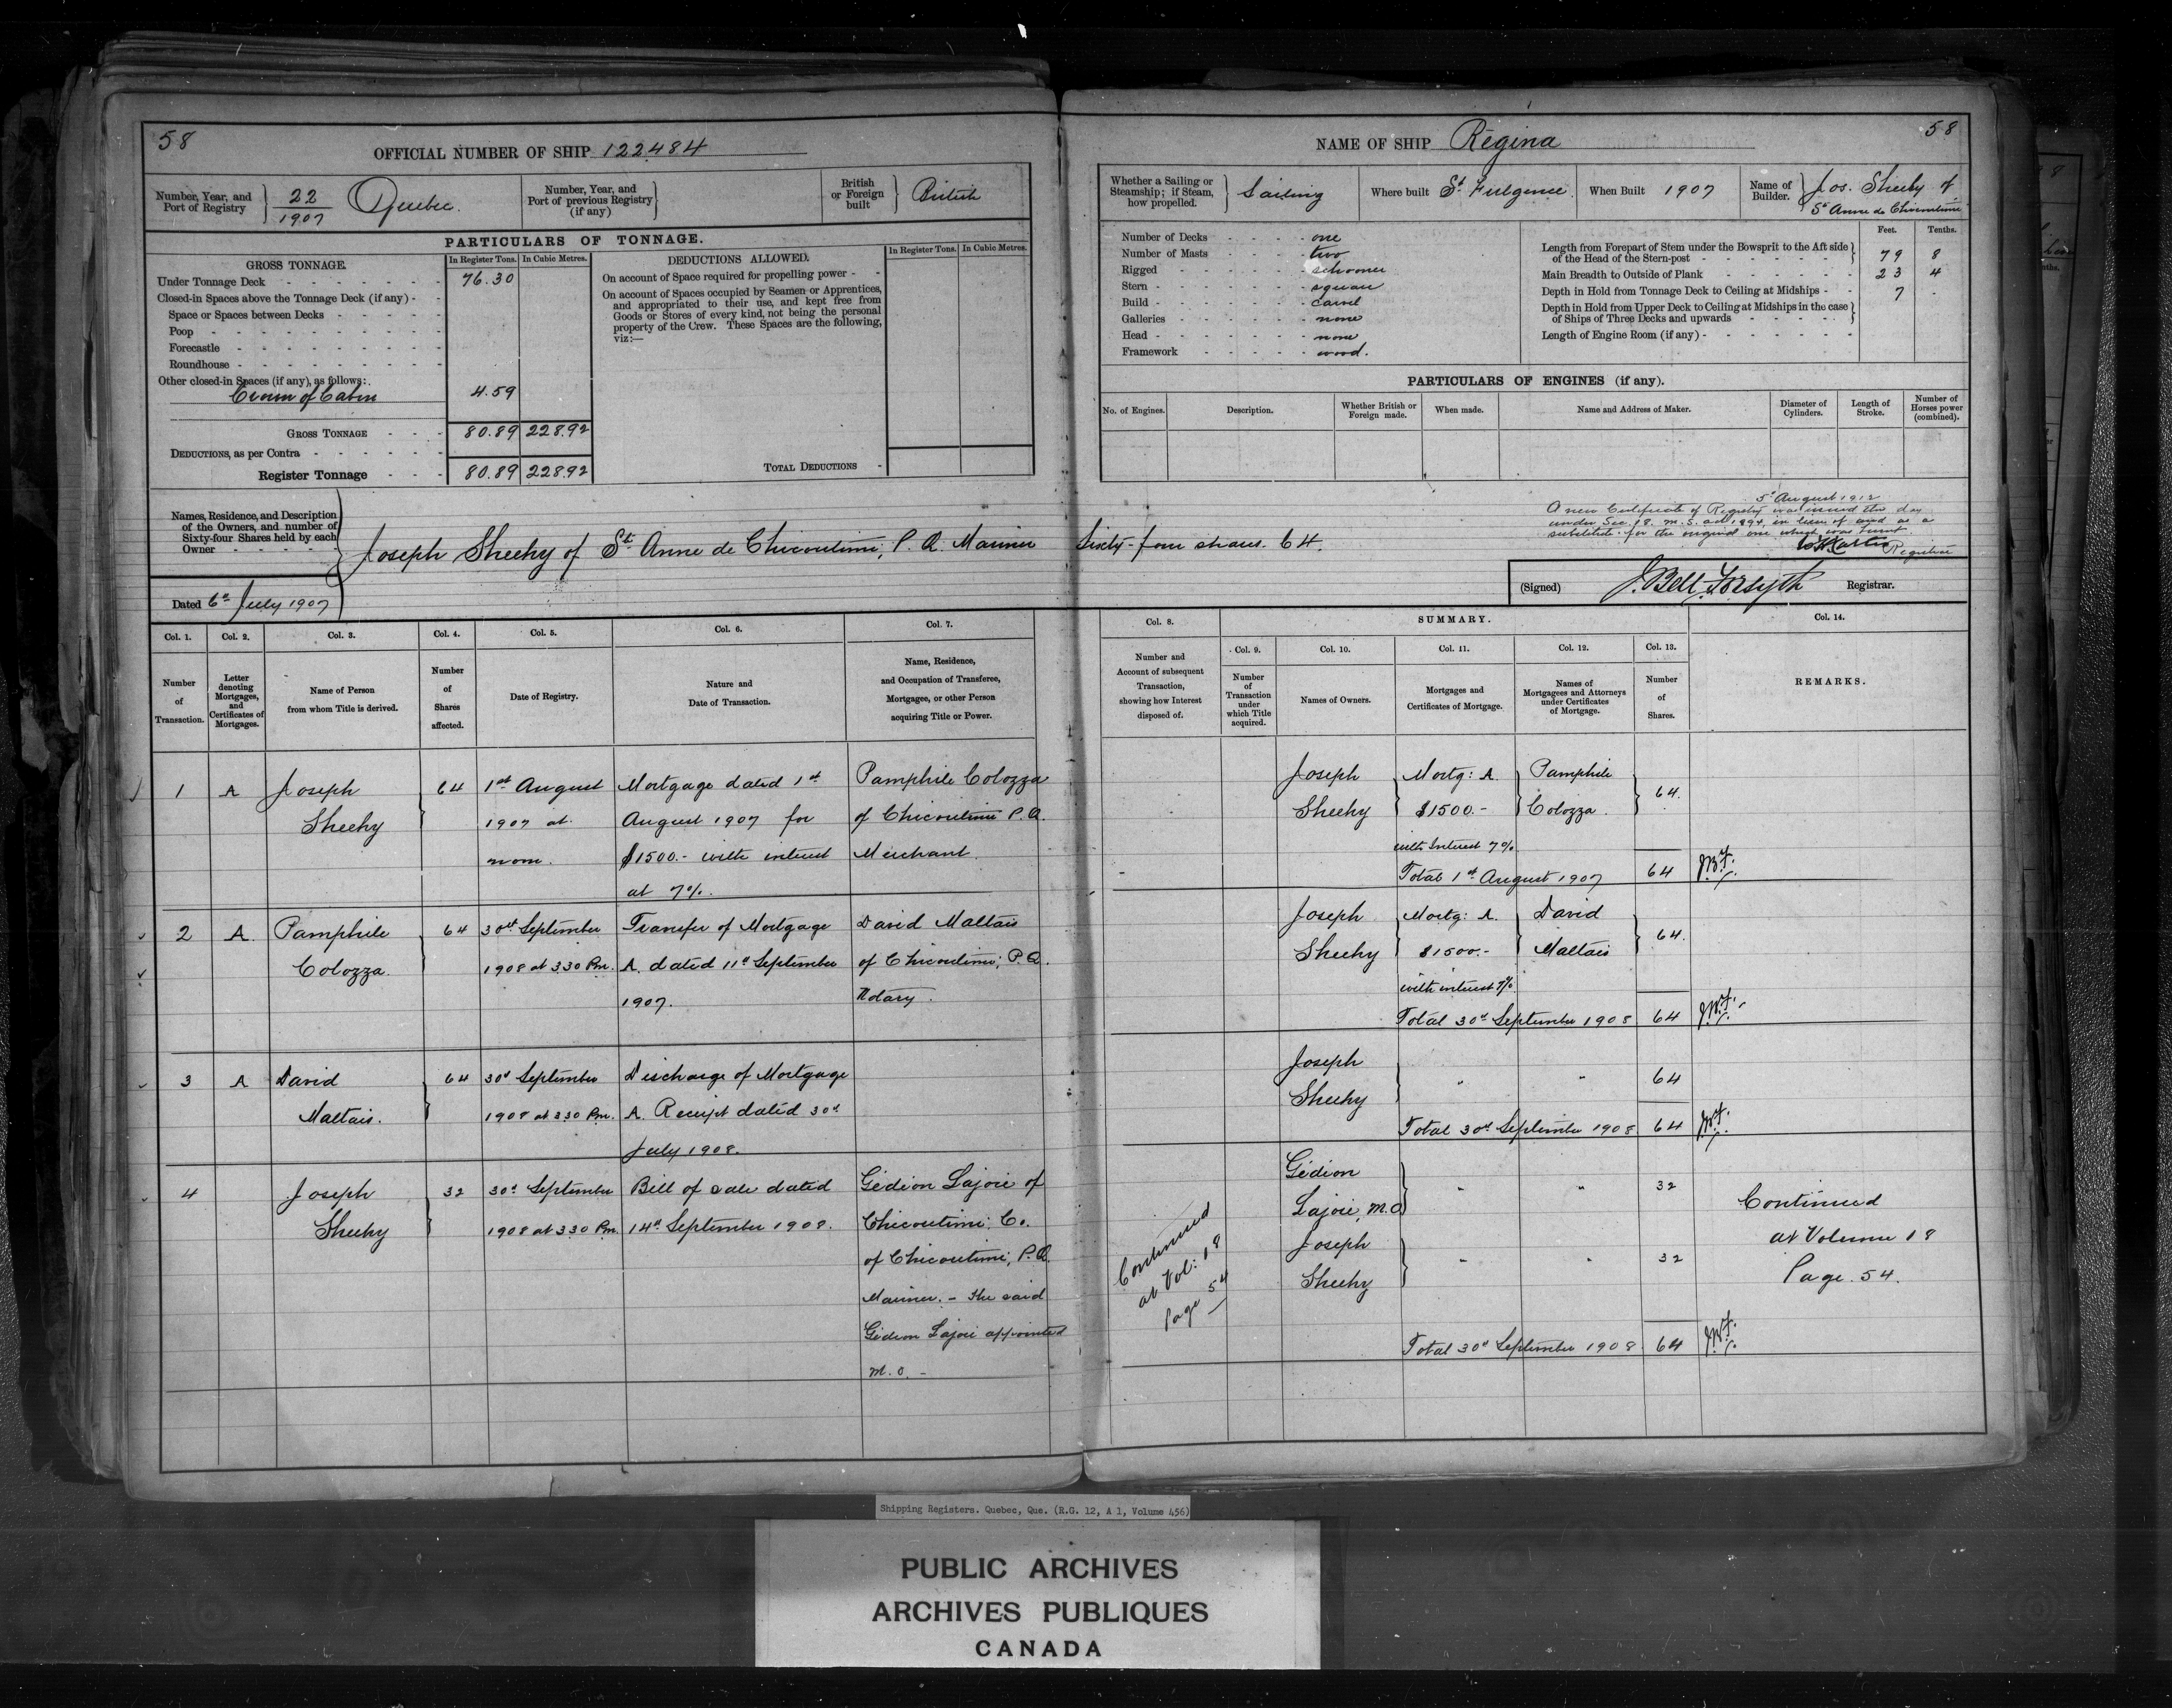 58
OFFICIAL NUMBER OF SHIP 122484
Number, Year, and Port of Registry } 22/1907 Quebec.
Number, Year, and Port of previous Registry (if any) }
British or Foreign built } British
PARTICULARS OF TONNAGE.
GROSS TONNAGE.
In Register Tons. In Cubic Metres.
Under Tonnage Deck 76.30
Closed-in Spaces above the Tonnage Deck (if any)
Space or Spaces between Decks
Poop
Forecastle
Roundhouse
Other closed-in Spaces (if any), as follows:
Crown of Cabin 4.59
GROSS TONNAGE 80.89 228.92
DEDUCTIONS, as per Contra
Register Tonnage 80.89 228.92
DEDUCTIONS ALLOWED.
In Register Tons. In Cubic Metres.
On account of Space required for propelling power
On account of Spaces occupied by Seamen or Apprentices,
and appropriated to their use, and kept free from
Goods or Stores of every kind, not being the personal
property of the Crew. These Spaces are the following,
viz:—
TOTAL DEDUCTIONS
Names, Residence, and Description
of the Owners, and number of
Sixty-four Shares held by each
Owner
Joseph Sheehy of St. Anne de Chicoutimi, P.Q. Mariner Sixty-four shares. 64.
Dated 6th July 1907
NAME OF SHIP Régina
58
Whether a Sailing or Steamship; if Steam, how propelled. } Sailing
Where built St. Fulgence.
When Built 1907
Name of Builder. } Jos. Sheehy of
St Anne de Chicoutimi
Number of Decks one
Number of Masts two
Rigged schooner
Stern square
Build carvel
Galleries none
Head none
Framework wood.
Feet. Tenths.
Length from Forepart of Stem under the Bowsprit to the Aft side
of the Head of the Stern-post 79 8
Main Breadth to Outside of Plank 23 4
Depth in Hold from Tonnage Deck to Ceiling at Midships 7 -
Depth in Hold from Upper Deck to Ceiling at Midships in the case
of Ships of Three Decks and upwards
Length of Engine Room (if any)
PARTICULARS OF ENGINES (if any).
No. of Engines. Description. Whether British or Foreign made. When made. Name and Address of Maker. Diameter of Cylinders. Length of Stroke. Number of Horses power (combined).
5th August 1912
A new Certificate of Registry was issued this day
under Sec. 18. M.S. act 1894, in lieu of and as a
substitute for the original one which was burnt
Registrar
(Signed) J. Bell Forsyth Registrar.
Col. 1. Col. 2. Col. 3. Col. 4. Col. 5. Col. 6. Col. 7.
Number of Transaction.
Letter denoting Mortgages, and Certificates of Mortgages.
Name of Person from whom Title is derived.
Number of Shares affected.
Date of Registry.
Nature and Date of Transaction.
Name, Residence, and Occupation of Transferee, Mortgagee, or other Person acquiring Title or Power.
Col. 8. SUMMARY. Col. 14.
Col. 9. Col. 10. Col. 11. Col. 12. Col. 13.
Number and Account of subsequent Transaction, showing how Interest disposed of.
Number of Transaction under which Title acquired.
Names of Owners.
Mortgages and Certificates of Mortgage.
Names of Mortgagees and Attorneys under Certificates of Mortgage.
Number of Shares.
REMARKS.
1 A Joseph 64 1st August Mortgage dated 1st Pamphile Colozza
Sheehy 1907 at August 1907 for of Chicoutimi P.Q.
noon. $1500.- with interest Merchant.
at 7%.
Joseph Mortg: A. Pamphile 64.
Sheehy $1500.- Colozza.
with Interest 7%
Total 1st August 1907 64 J.B.F.
2 A. Pamphile 64 30th September Transfer of Mortgage David Maltais
Colozza. 1908 at 3.30 Pm. A. dated 11th September of Chicoutimi, P.Q.
1907. Notary.
Joseph Mortg: A. David 64.
Sheehy $1500.- Maltais
with interest 7%
Total 30th September 1908 64
3 A David 64 30th September Discharge of Mortgage
Maltais. 1908 at 3.30 Pm. A. Receipt dated 30th
July 1908.
Joseph " " 64
Sheehy
Total 30th September 1908 64
4 Joseph 32 30th September Bill of sale dated Gédéon Lajoie of
Sheehy 1908 at 3.30 Pm. 14th September 1908. Chicoutimi, Co.
of Chicoutimi, P.Q.
Mariner. - The said
Gédéon Lajoie appointed
M.O. -
Continued
at Vol: 18
Page 54
Gédéon " " 32
Lajoie, M.O
Joseph " " 32
Sheehy
Total 30th September 1908. 64
Continued
at Volume 18
Page. 54.
Shipping Registers. Quebec, Que. (R.G. 12, A 1, Volume 456)
PUBLIC ARCHIVES
ARCHIVES PUBLIQUES
CANADA